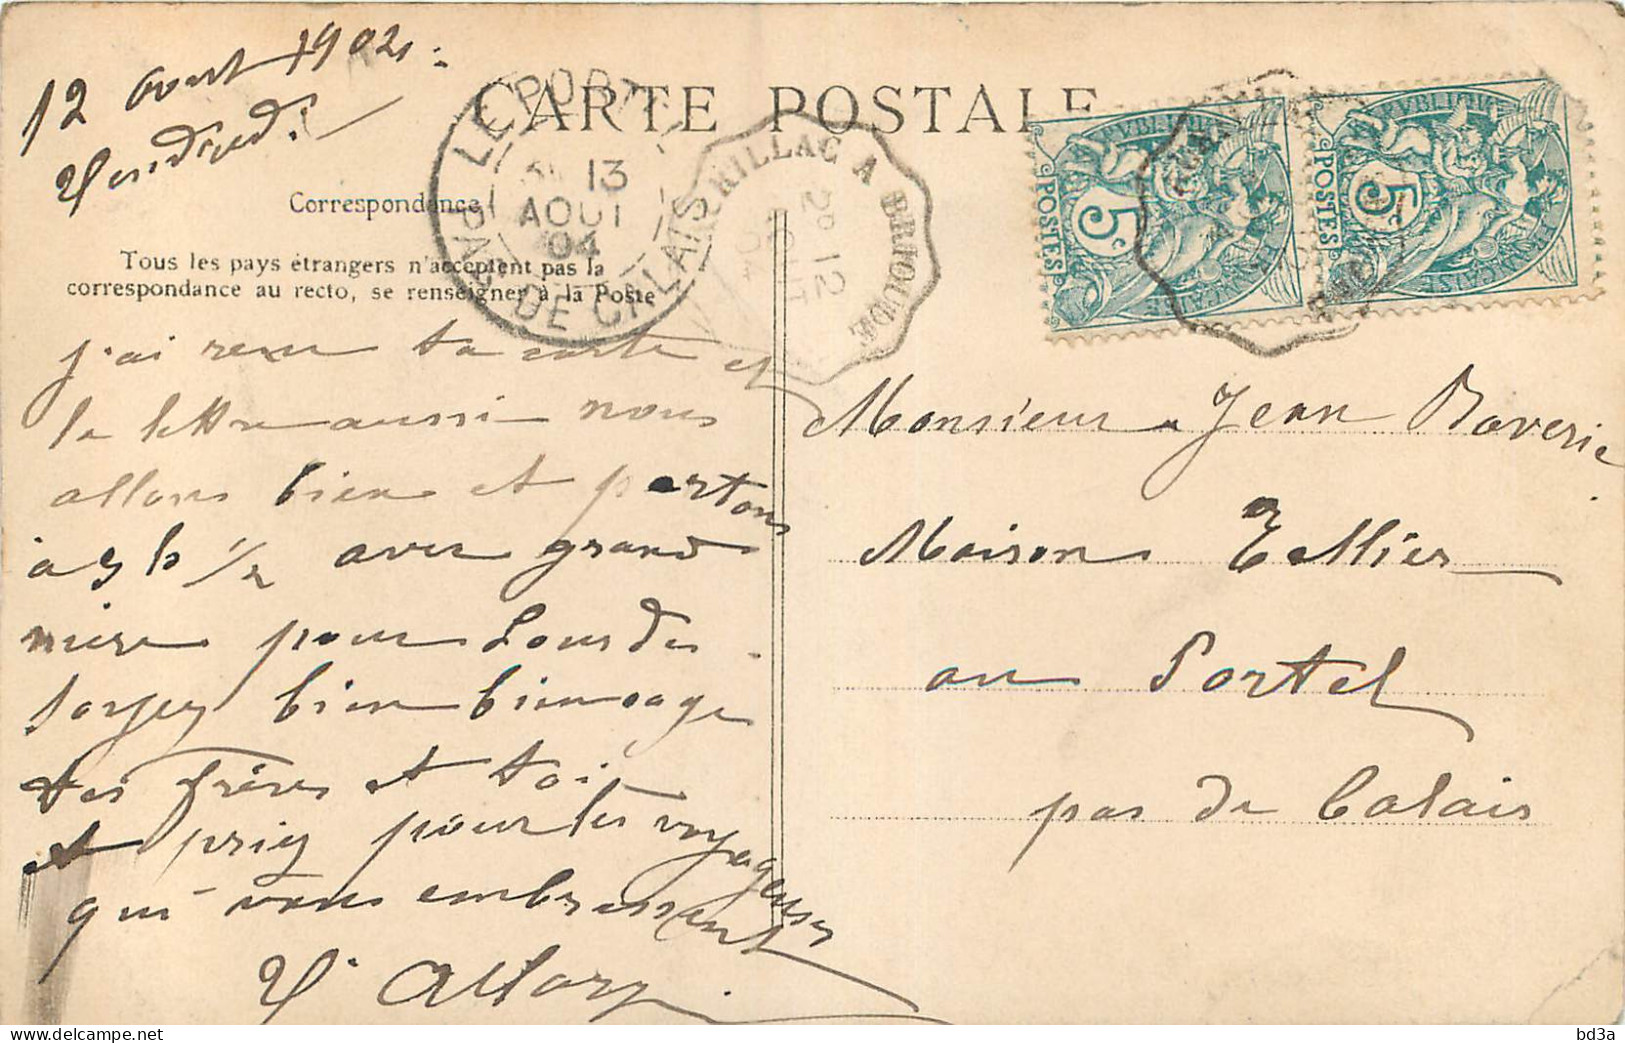 12 Aout 1904
Vendredi
CARTE POSTALE
Correspondance
Tous les pays étrangers n'acceptent pas la
correspondance au recto, se renseigner à la Poste
LE PORTEL
PAS DE CALAIS
13
AOUT
04
AURILLAC A BRIOUDE
2° 12
REPUBLIQUE FRANÇAISE
POSTES
5c
REPUBLIQUE FRANÇAISE
POSTES
5c
j'ai reçu ta carte et
la lettre aussi nous
allons bien et partons
à 5 h 1/2 avec grand
mère pour Lourdes.
soyez bien bien sage
tes frères et toi
et priez pour les voyageuses
qui vous embrassent
Monsieur Jean Baverie
Maison Tellier
au Portel
pas de Calais
bd3a